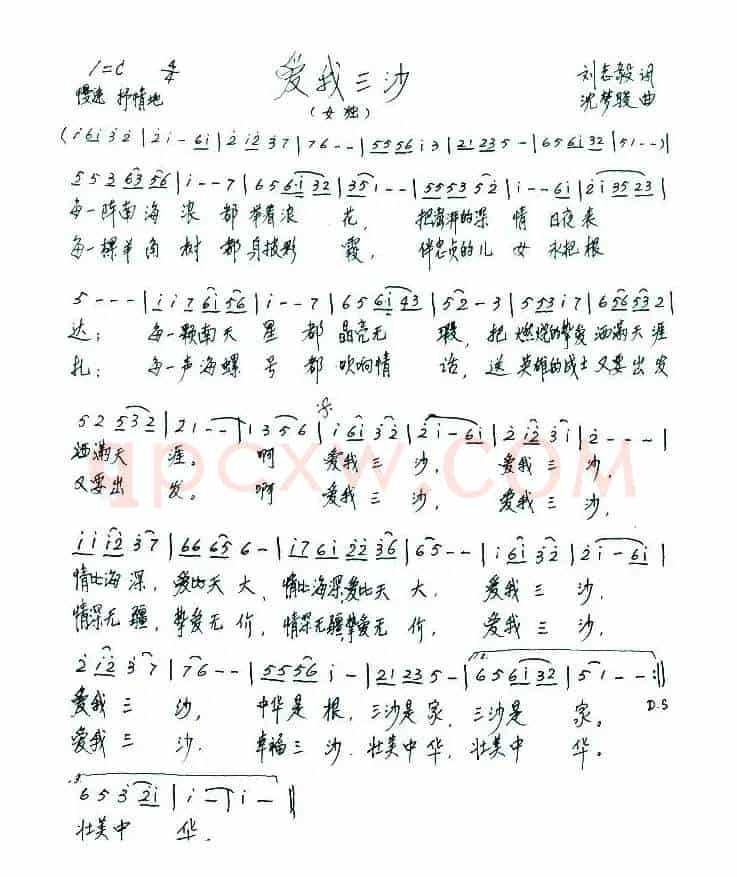 1=C 4/4 爱我三沙 刘志毅 词
慢速 抒情地 (女独) 沈梦骏 曲
(i 6i 3 2 | 2 i - 6i | 2 i2 3 7 | 7 6 - - | 5 5 5 6 i 3 | 2 1 2 3 5 - | 6 5 6i 32 | 5 1 - - )|
5 5 3 63 56 | i - - 7 | 6 5 6·i 32 | 35 1 - - | 5553 52 | i - - 6i | 2i 35 23 |
每一阵南海 浪 都 举着浪 花, 把 的深 情 日夜表
每一棵羊角 树 都 身披彩 霞, 伴忠贞的儿 女 永把根
5 - - - | i i 7 6i 56 | i - - 7 | 6 5 6i 43 | 5 2 - 3 | 5 5 3 i 7 | 6 56 53 2 |
达; 每一颗南天 星 都 晶亮无 瑕, 把 燃烧的挚爱 洒满天涯
扎; 每一声海螺 号 都 吹响情 话, 送 英雄的战士 又要出发
5 2 53 2 | 2 1 - - | 1 3 5 6 | i 6i 3 2 | 2 i - 6i | 2 i2 3 i | 2 - - - |
洒满天 涯。 啊 爱我三 沙, 爱我三 沙,
又要出 发。 啊 爱我三 沙, 爱我三 沙,
i i i2 3 7 | 6 6 6 5 6 - | i 7 6i 22 36 | 6 5 - - | i 6i 3 2 | 2 i - 6i |
情比海深, 爱比天大, 情比海深,爱比天 大, 爱我三 沙,
情深无疆, 挚爱无价, 情深无疆,挚爱无 价, 爱我三 沙,
2 i2 3 7 | 7 6 - - | 5 5 5 6 i - | 2 1 2 3 5 - | 1.2. 6 5 6i 32 | 5 1 - - :||
爱我三 沙, 中华是 根, 三沙是家, 三沙是 家。 D.S
爱我三 沙. 幸福三 沙. 壮美中华, 壮美中 华。
3. 6 5 3 2i | i - - | i - ||
壮美中 华.
qpcxw.com